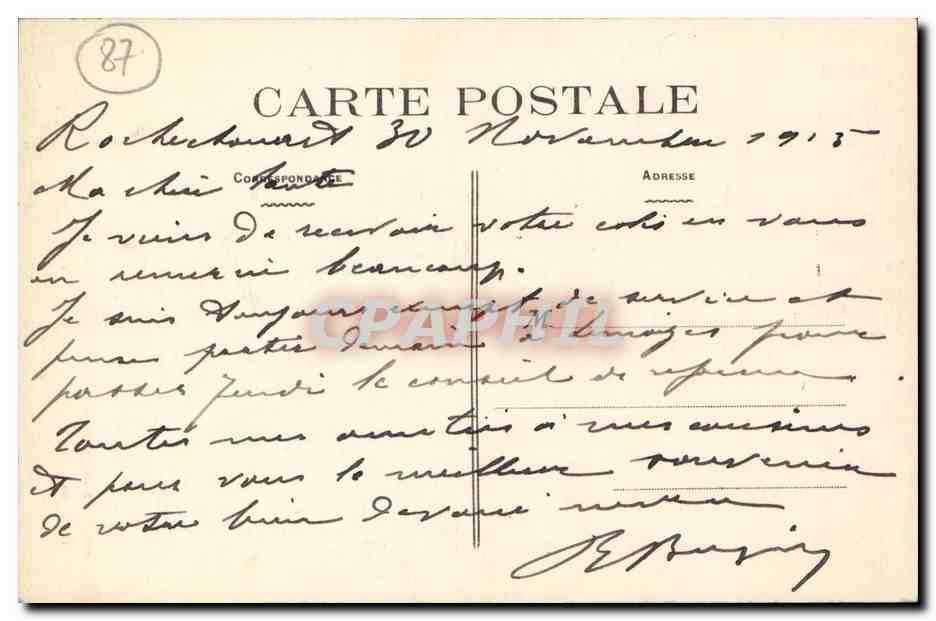 87
CARTE POSTALE
Rochechouart 30 Novembre 1915
CORRESPONDANCE
ADRESSE
Ma chère tante
Je viens de recevoir votre colis en vous
en remercie beaucoup.
Je suis toujours exempt de service et
pense partir demain à Limoges pour
passer jeudi le conseil de réforme.
Toutes mes amitiés à mes cousins
et pour vous le meilleur souvenir
de votre bien dévoué neveu
CPAPHIL